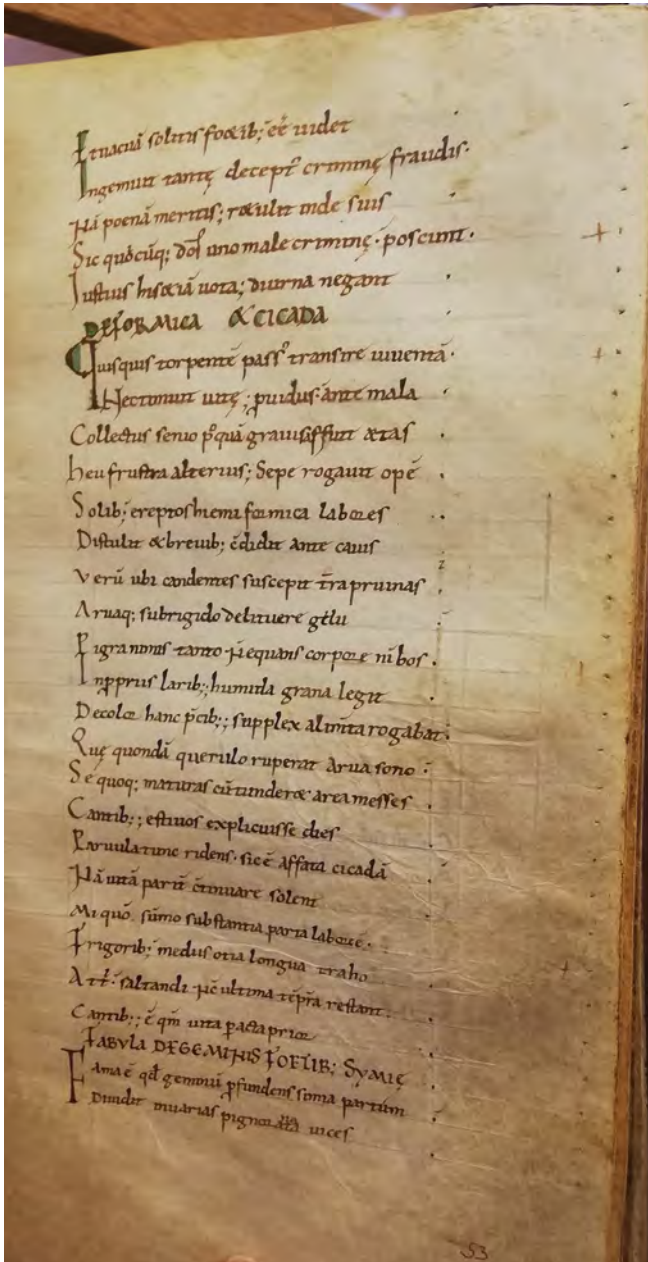 Et uacuā solitis foetib; eē uidet
Ingemuit tantę decept᷒ crimine fraudis.
Nā poenā meritis; rōetulit inde suis
Sic quōcūq; dol᷒ uno male crimine. poscunt.
Iustius his etiā uota; diurna negant
DE FORMICA & CICADA
Quisquis torpentē pass᷒ transire iuuentā.
Nec timuit uitę; p̱uidus. ante mala
Collectus senio p᷒quā grauis affuit ętas
heu frustra alterius; Sepe rogauit opē
Solib; ereptos hiemi formica labores
Distulit & breuib; c̄didit ante cauis
Verū ubi candentes suscepit t̄ra pruinas
Aruaq; subrigido delituere gelu
Pigra nimis tanto n̄ equans corpore nibos.
Inp̱priis larib; humida grana legit
Decolor hanc p̄cib;; supplex alim̄ta rogabat.
Quę quondā querulo ruperat arua sono
Se quoq; maturas cū tunderet area messes
Cantib;; estiuos explicuisse dies
Paruula tunc ridens. sic ē affata cicadā
Nā uitā parit̄ c̄tinuare solent
Mi quō. sūmo substantia parta laborē.
Frigorib; medus otia longua traho
At t᷒. saltandi nc̄ ultima tēp̄ra restant
Cantib;; ē qm̄ uita p̱acta prior
FABVLA DE GEMINIS FOETIB; SYMIĘ
Fama ē qd̄ geminū p̱fundens simia partūm
Diuidit inuarias pignora uices
53